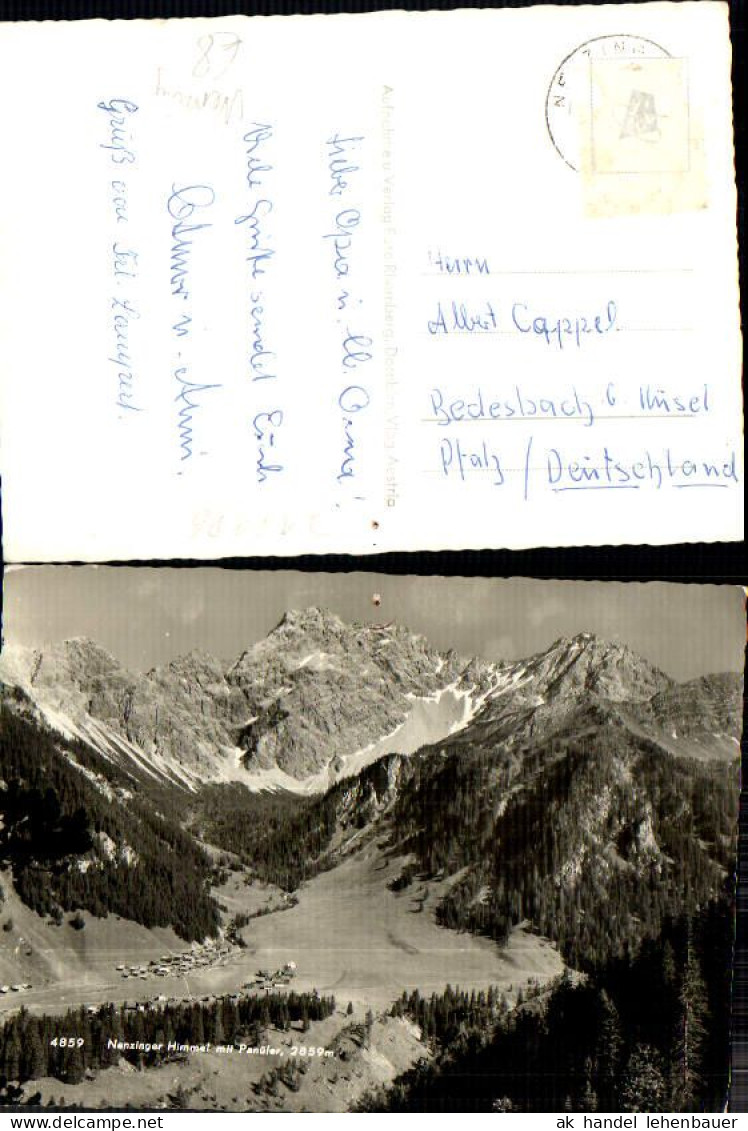 Lieber Opa u. lb. Oma!
Viele Grüße sendet Euch
Elmar u. Anni.
Gruß von Frl. Lampert.
Aufnahme u. Verlag Risch-Lau, Dornbirn, Vlbg. Austria
Herrn
Albert Cappel
Bedesbach b. Kusel
Pfalz / Deutschland
NENZING
4859 Nenzinger Himmel mit Panüler, 2859m
delcampe.net
ak handel lehenbauer